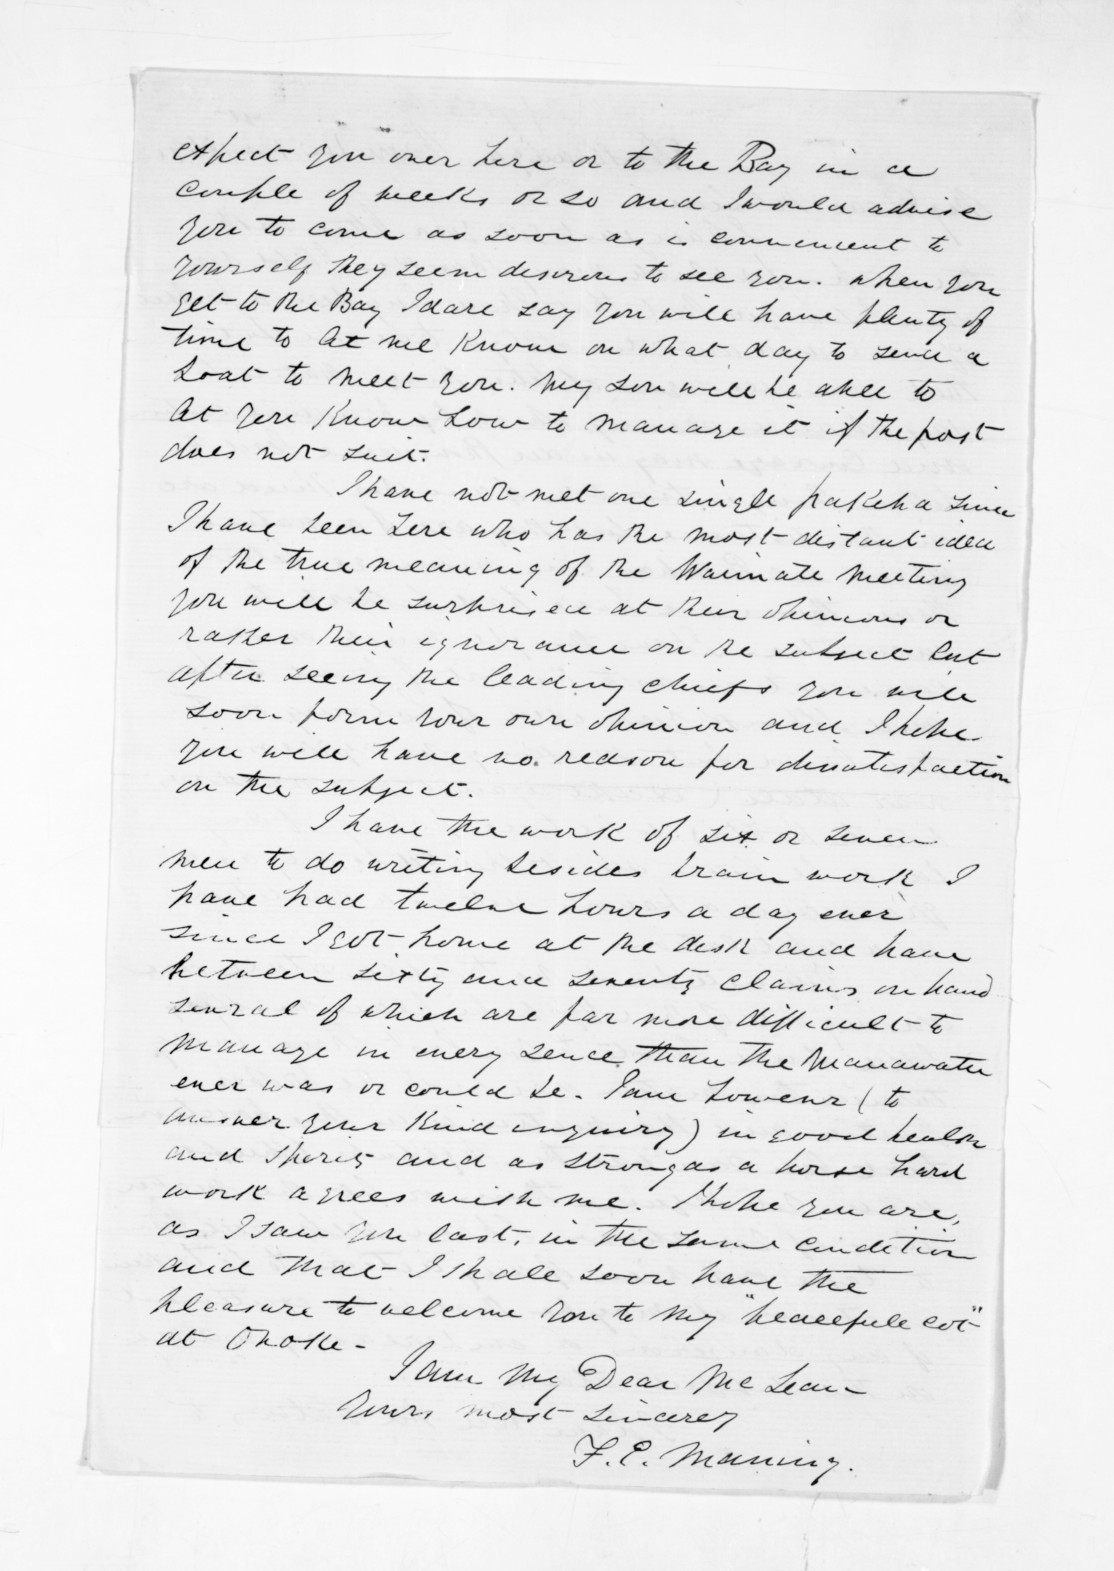 expect you over here or to the Bay in a
couple of weeks or so and I would advise
you to come as soon as is convenient to
yourself they seem desirous to see you. when you
get to the Bay I dare say you will have plenty of
time to let me know on what day to send a
boat to meet you. my son will be able to
let you know how to manage it if the post
does not suit.
I have not met one single pakeha since
I have been here who has the most distant idea
of the true meaning of the Waimate meeting
you will be surprised at their opinions or
rather their ignorance on the subject but
after seeing the leading chiefs you will
soon form your own opinion and I hope
you will have no reason for dissatisfaction
on the subject.
I have the work of six or seven
men to do writing besides brain work I
have had twelve hours a day ever
since I got home at the desk and have
between sixty and seventy claims on hand
several of which are far more difficult to
manage in every sence than the Manawatu
ever was or could be. I am however (to
answer your kind inquiry) in good health
and spirits and as strong as a horse hard
work agrees with me. I hope you are,
as I saw you last, in the same condition
and that I shall soon have the
pleasure to welcome you to my "peacefull cot"
at Onoke -
I am My Dear McLean
Yours most sincerely
F. E. Maning.